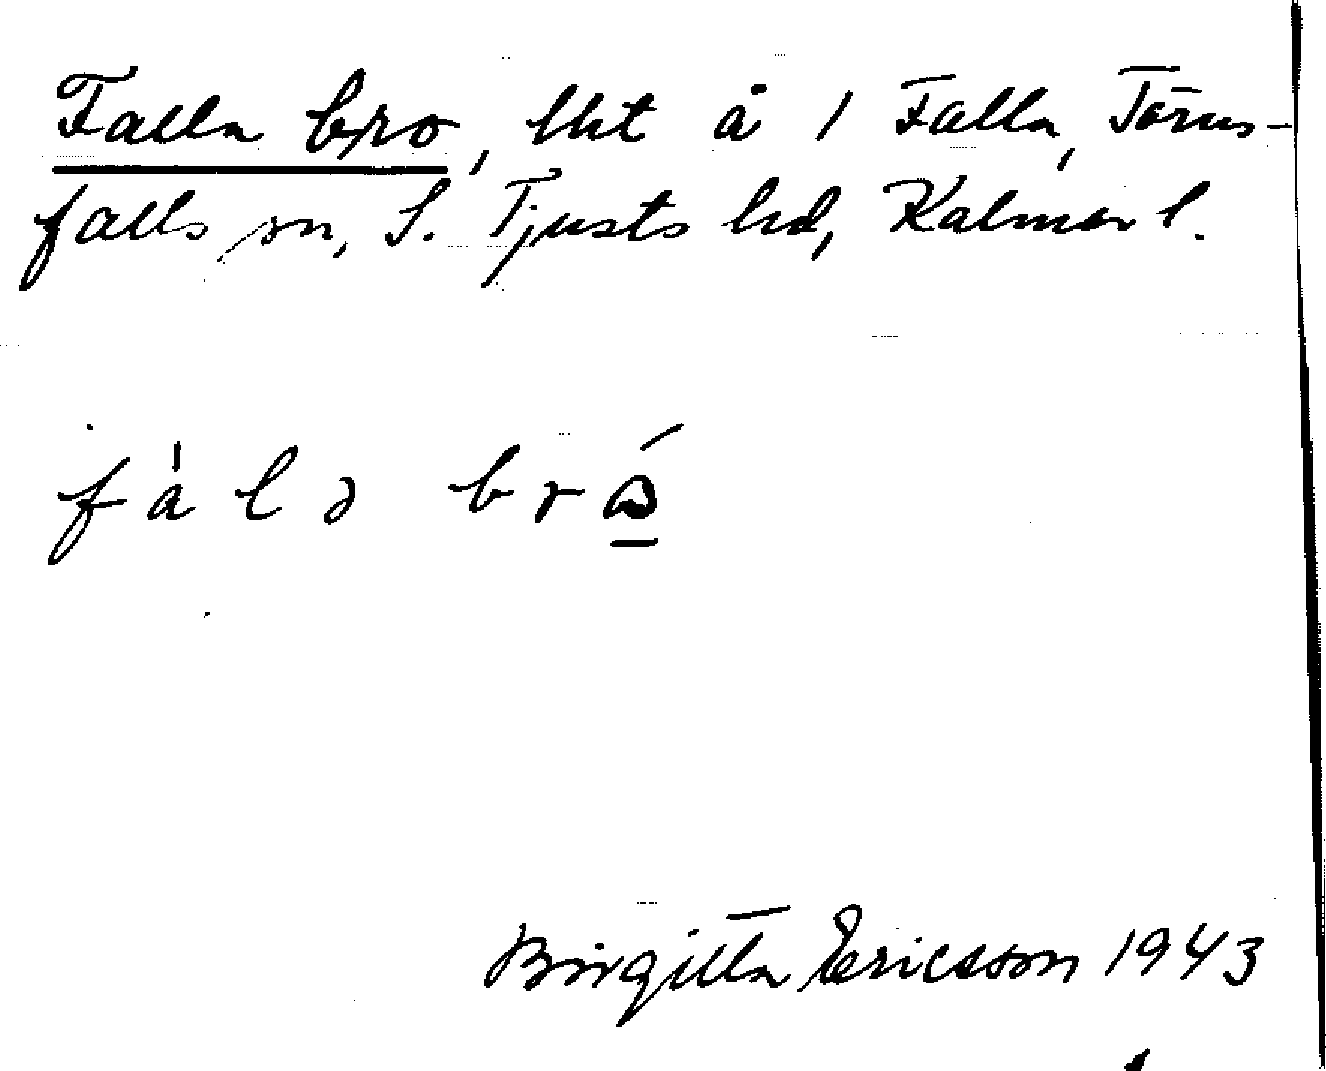 Falla bro, lht å 1 Falla, Törns-
falls sn, S. Tjusts hd, Kalmar l.
fàlə bró̲
Birgitta Ericsson 1943